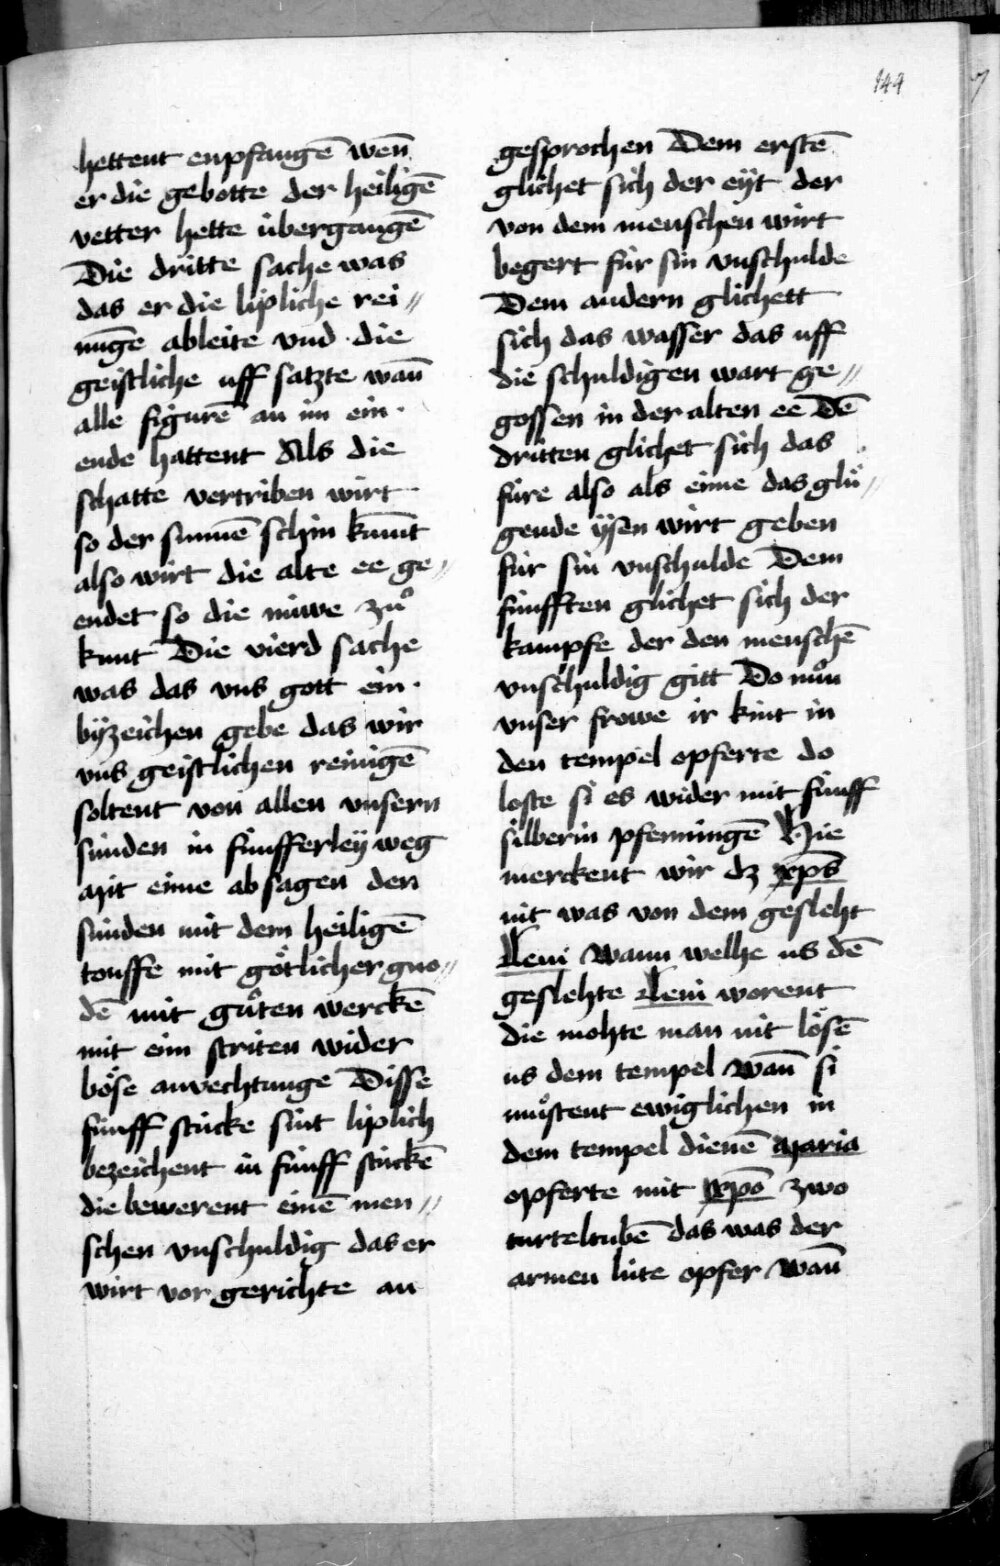 144
hettent enpfangē wēn
er die gebotte der heiligē
vetter hette übergangē
Die dritte sache was
das er die lipliche rei//
nūge ableite vnd die
geistliche uff satzte wañ
alle figurē an im ein
ende hattent Als die
schatte vertriben wirt
so der sunnē schin kumt
also wirt die alte ee ge//
endet so die nüwe zuͦ
kunt Die vierd sache
was das vns gott ein
byzeichen gebe das wir
vns geistlichen reinigē
soltent von allen vnsern
sünden in fünfferley weg
Mit eime absagen den
sünden mit dem heiligē
touffe mit götlicher gno//
dē mit guͦten werckē
mit eim striten wider
böse anvechtunge Disse
fünff stücke sint liplich
bezeichent in fünff stückē
die bewerent einē men//
schen vnschuldig das er
wirt vor gerichte an
gesprochen Dem erstē
glichet sich der eyt der
von dem menschen wirt
begert für sin vnschulde
Dem andern glichett
sich das wasser das uff
die schuldigen wart ge//
gossen in der alten ee Dē
dritten glichet sich das
füre also als eime das glü//
gende ysen wirt geben
für sin vnschulde Dem
fünfften glichet sich der
kampfe der den menschē
vnschuldig gitt Do nuͦn
vnser frowe ir kint in
den tempel opferte do
loste si es wider mit fünff
silberin pfenningē Hie
merckent wir dz xp̄s
nit was von dem gesleht
Leui Wann welhe us dē
geslehte Leui worent
die mohte man nit lösē
us dem tempel Wañ si
muͦstent ewiglichen in
dem tempel dienē Maria
opferte mit xp̄o zwo
turteltubē das was der
armen lüte opfer Wañ